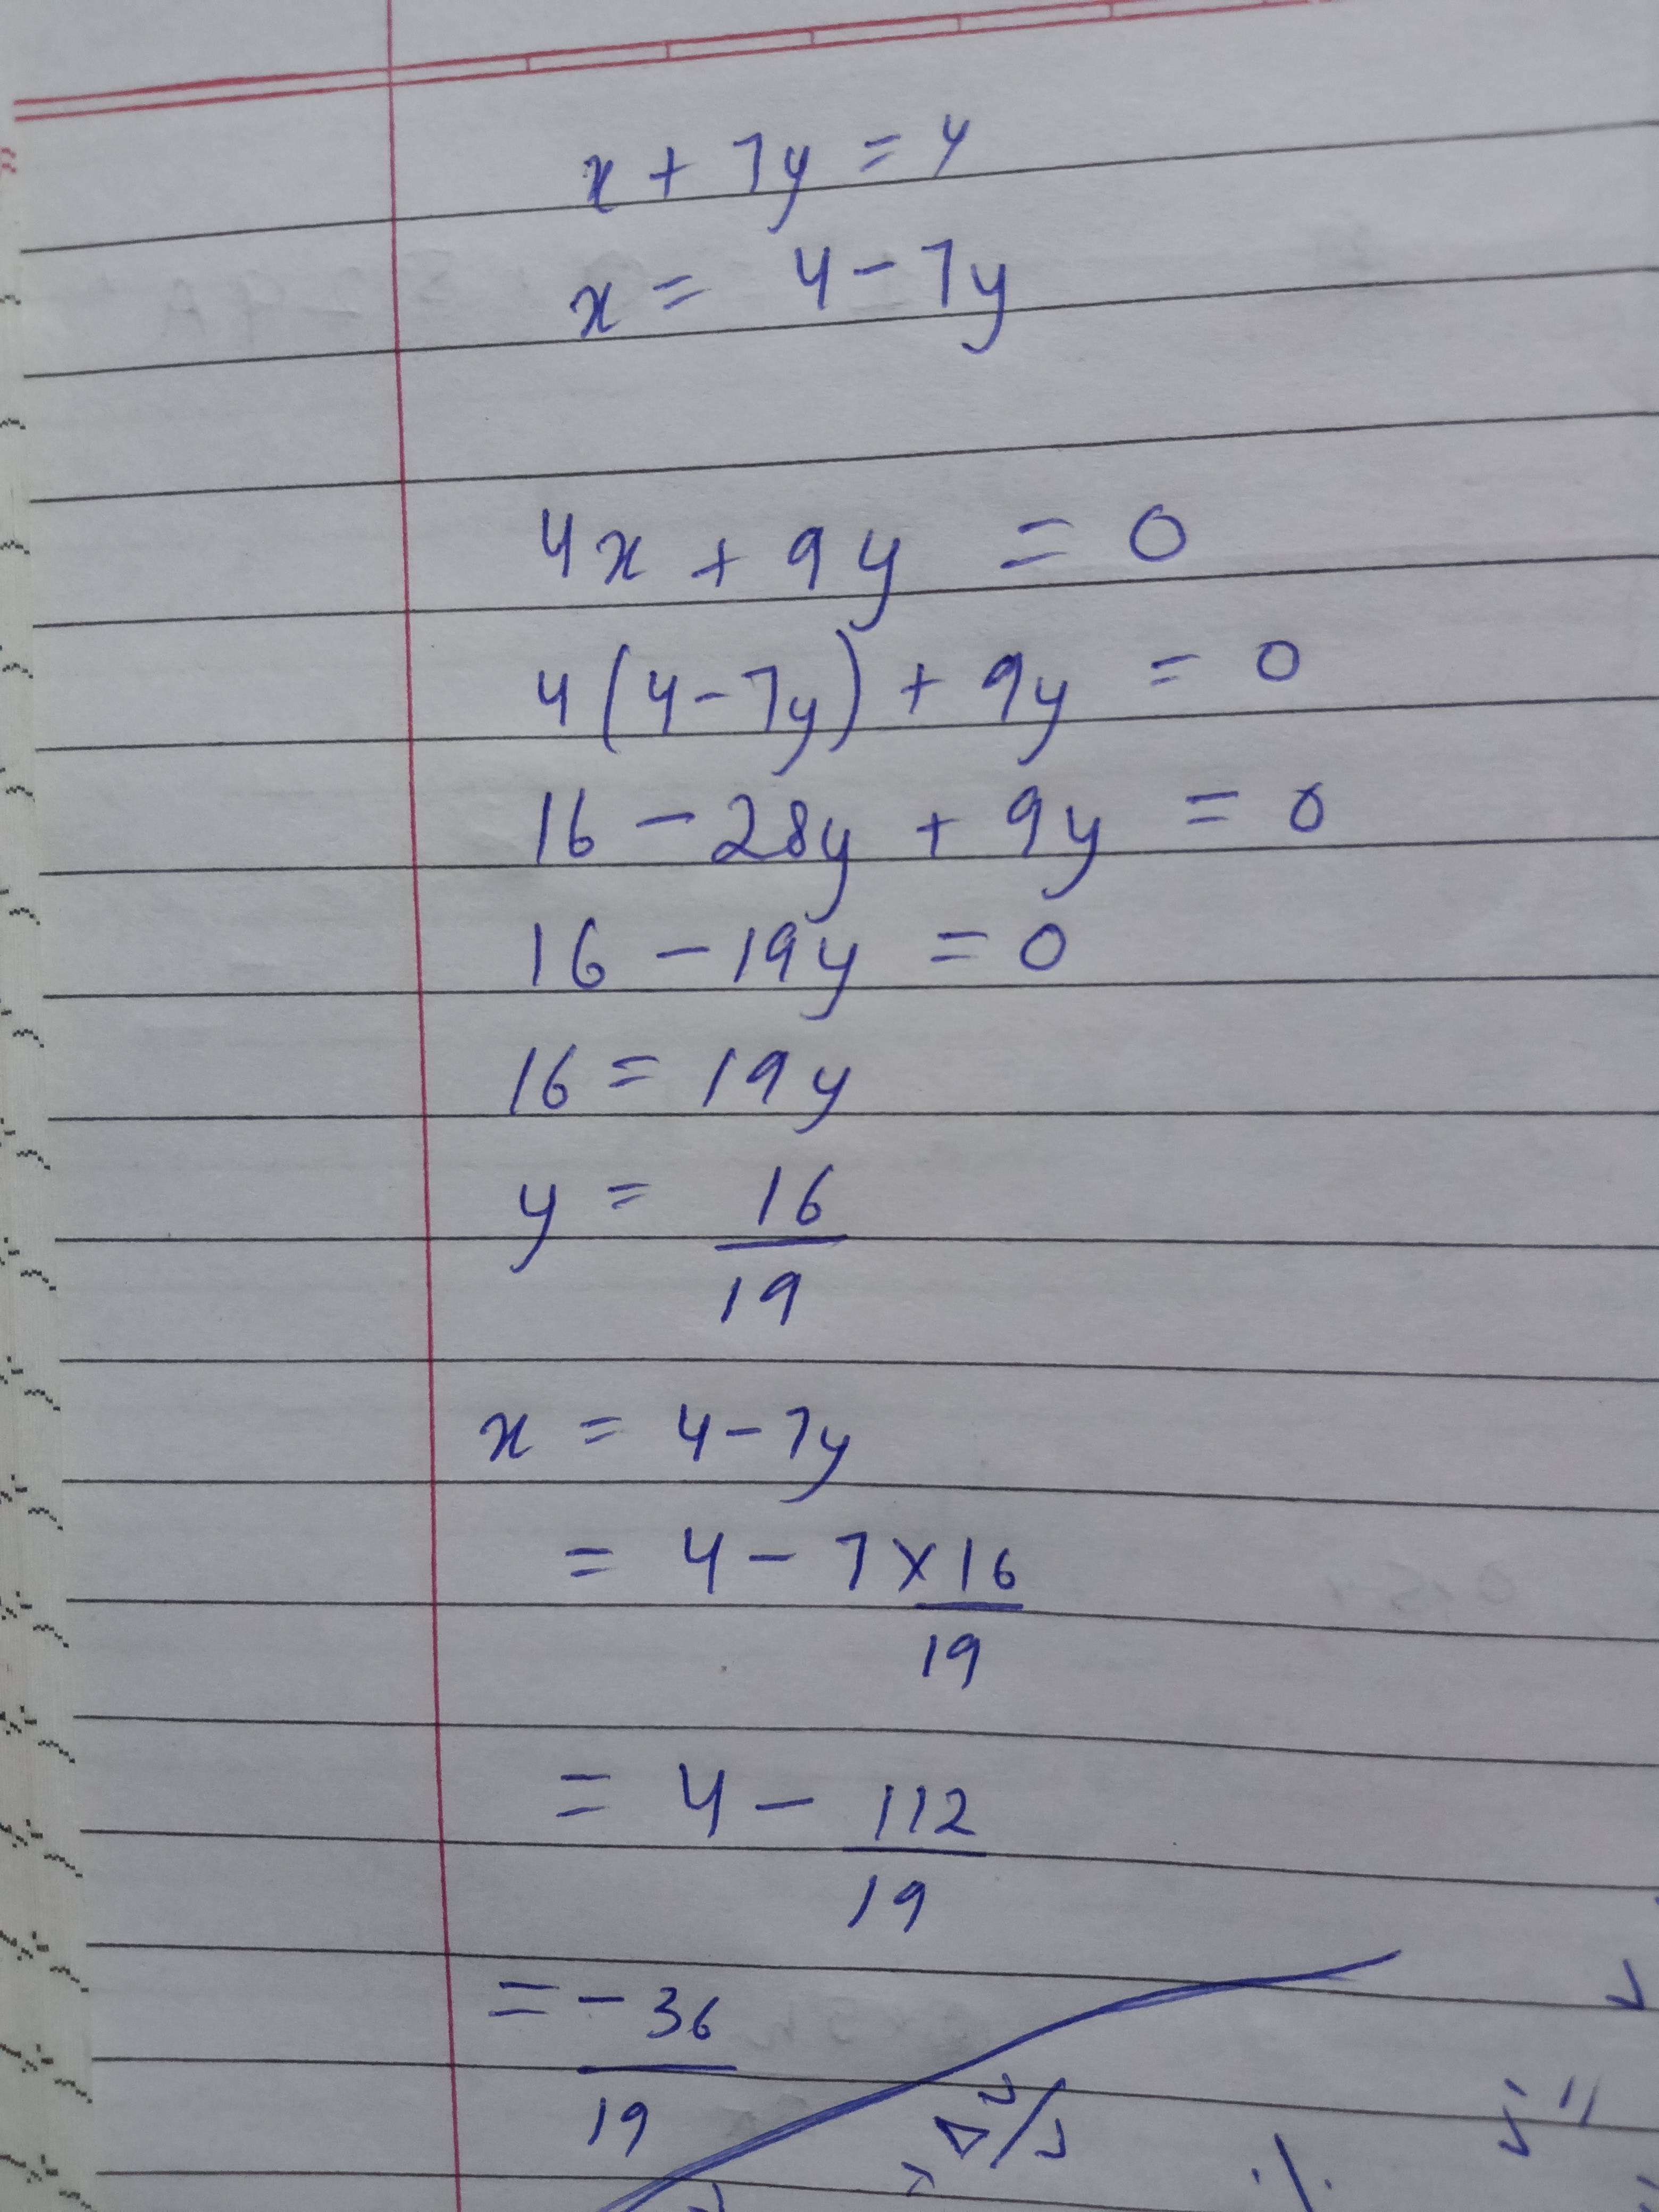 x + 7y = 4
x = 4 - 7y
4x + 9y = 0
4(4 - 7y) + 9y = 0
16 - 28y + 9y = 0
16 - 19y = 0
16 = 19y
y = 16/19
x = 4 - 7y
= 4 - 7 × 16/19
= 4 - 112/19
= - 36/19